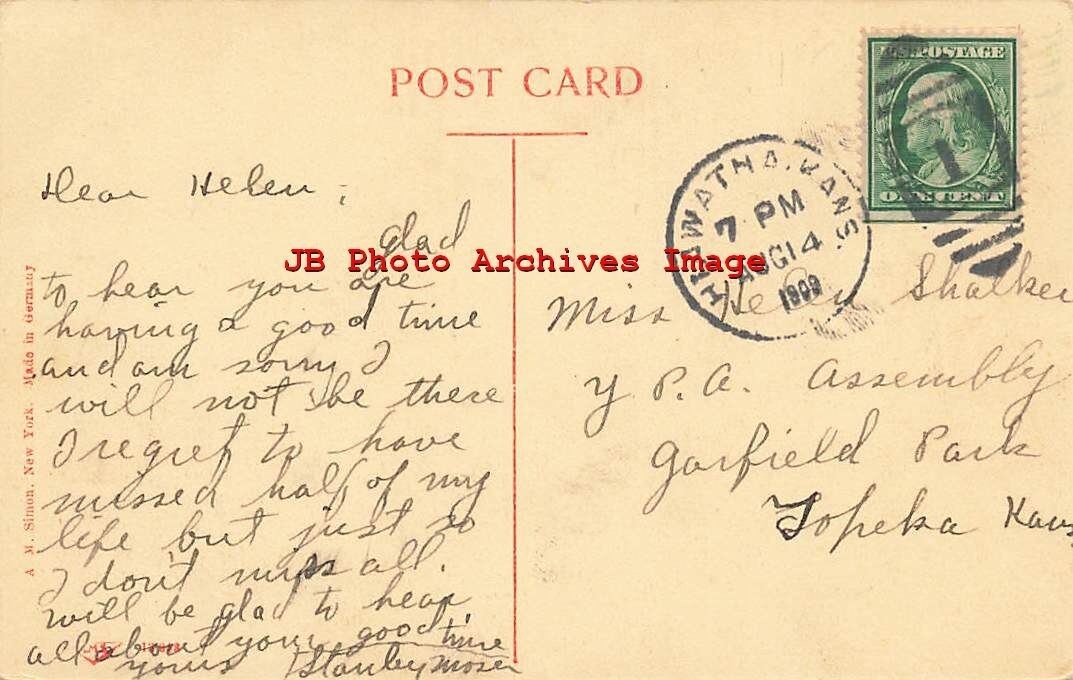 POST CARD
U.S. POSTAGE
ONE CENT
1
HIAWATHA, KANS.
7 PM
AUG 14
1909
JB Photo Archives Image
Dear Helen;
glad
to hear you are
having a good time
and am sorry I
will not be there
I regret to have
missed half of my
life but just so
I don't miss all.
will be glad to hear
all about your good time
yours Stanley Moser
Miss Helen Shalker
Y P. A. Assembly
Garfield Park
Topeka Kans
A. M. Simon. New York. Made in Germany